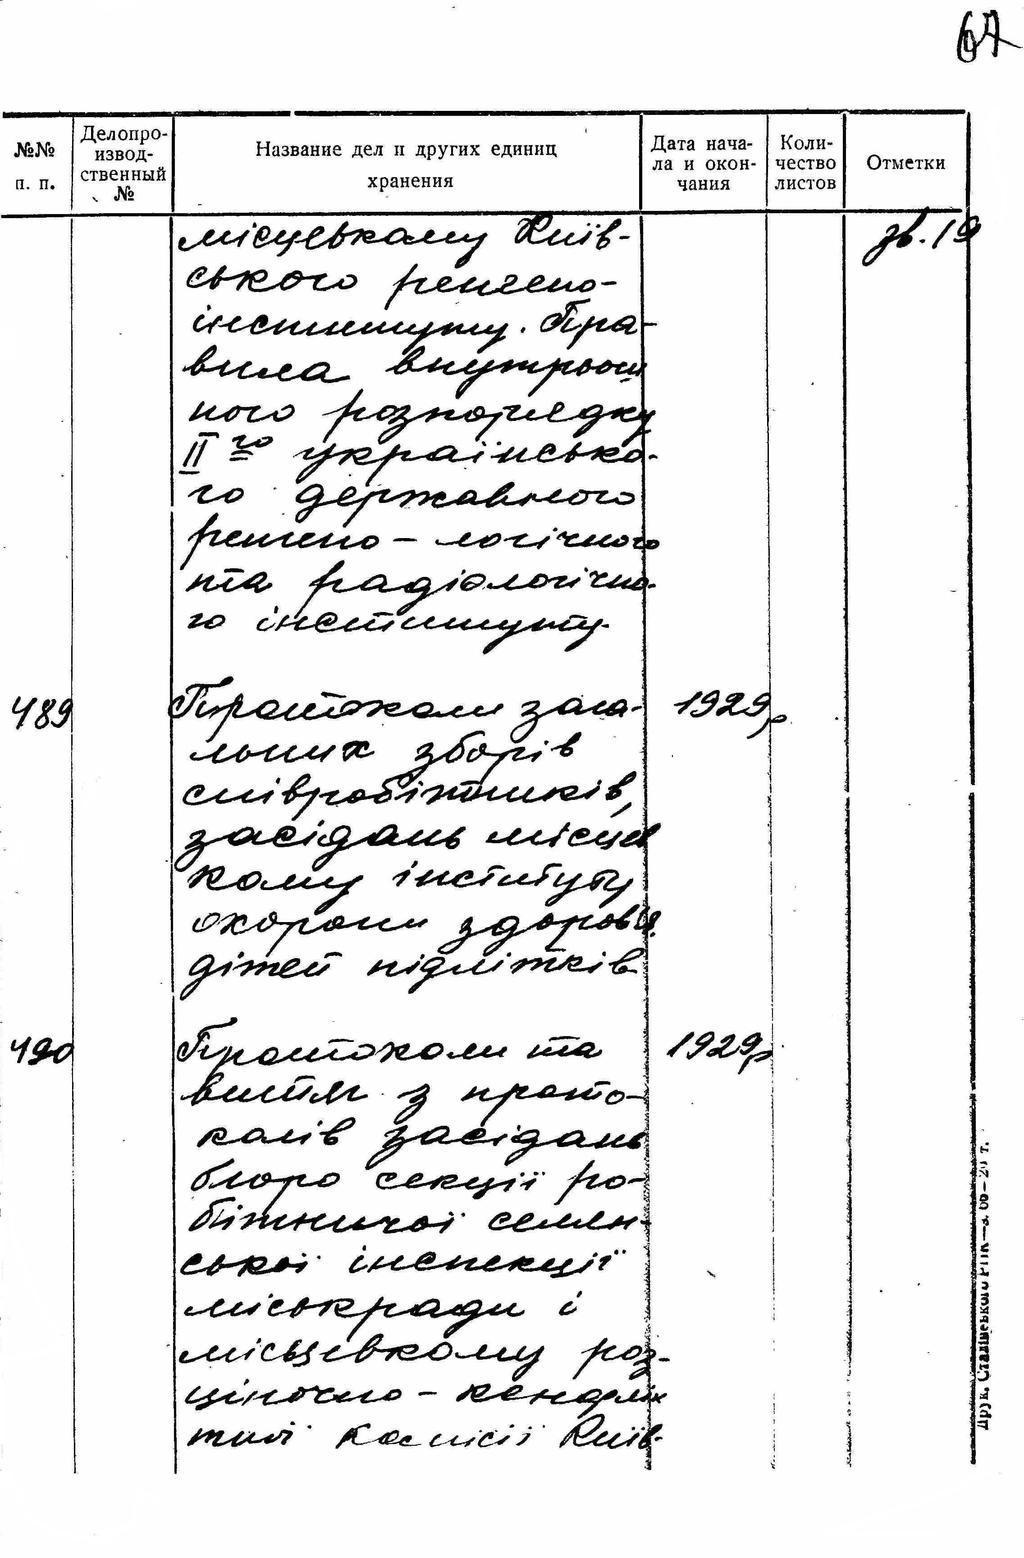 67
№№ п. п.
Делопро-
извод-
ственный
№
Название дел и других единиц
хранения
Дата нача-
ла и окон-
чания
Коли-
чество
листов
Отметки
місцевкому Київ-
ського рентгено-
інституту. Пра-
вила внутрош
ного розпорядку
II го українсько-
го державного
рентгено - логічного
та радіологічно-
го інституту.
зв. 19
489
Протоколи зага-
льних зборів
співробітників,
засідань місцев
кому інституту
охорони здоров'я.
дітей підлітків
1929р
490
Протоколи та
витяг з прото-
колів засідань
бюро секції ро-
бітничої селян-
ської інспекції
міськради і
місьцевкому роз-
ціночно - конфлік
тної комісії Київ-
1929р